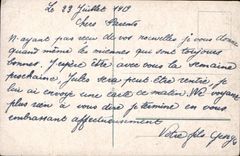 Le 29 Juillet 1919
Chers Parents
N'ayant pas reçu de vos nouvelles je vous donne
quand même les miennes qui sont toujours
bonnes. J'espère être avec vous la semaine
prochaine, Jules sera peut être rentré, je
lui ai envoyé une carte ce matin. Ne voyant
plus rien a vous dire je termine en vous
embrassant affectueusement
Votre fils